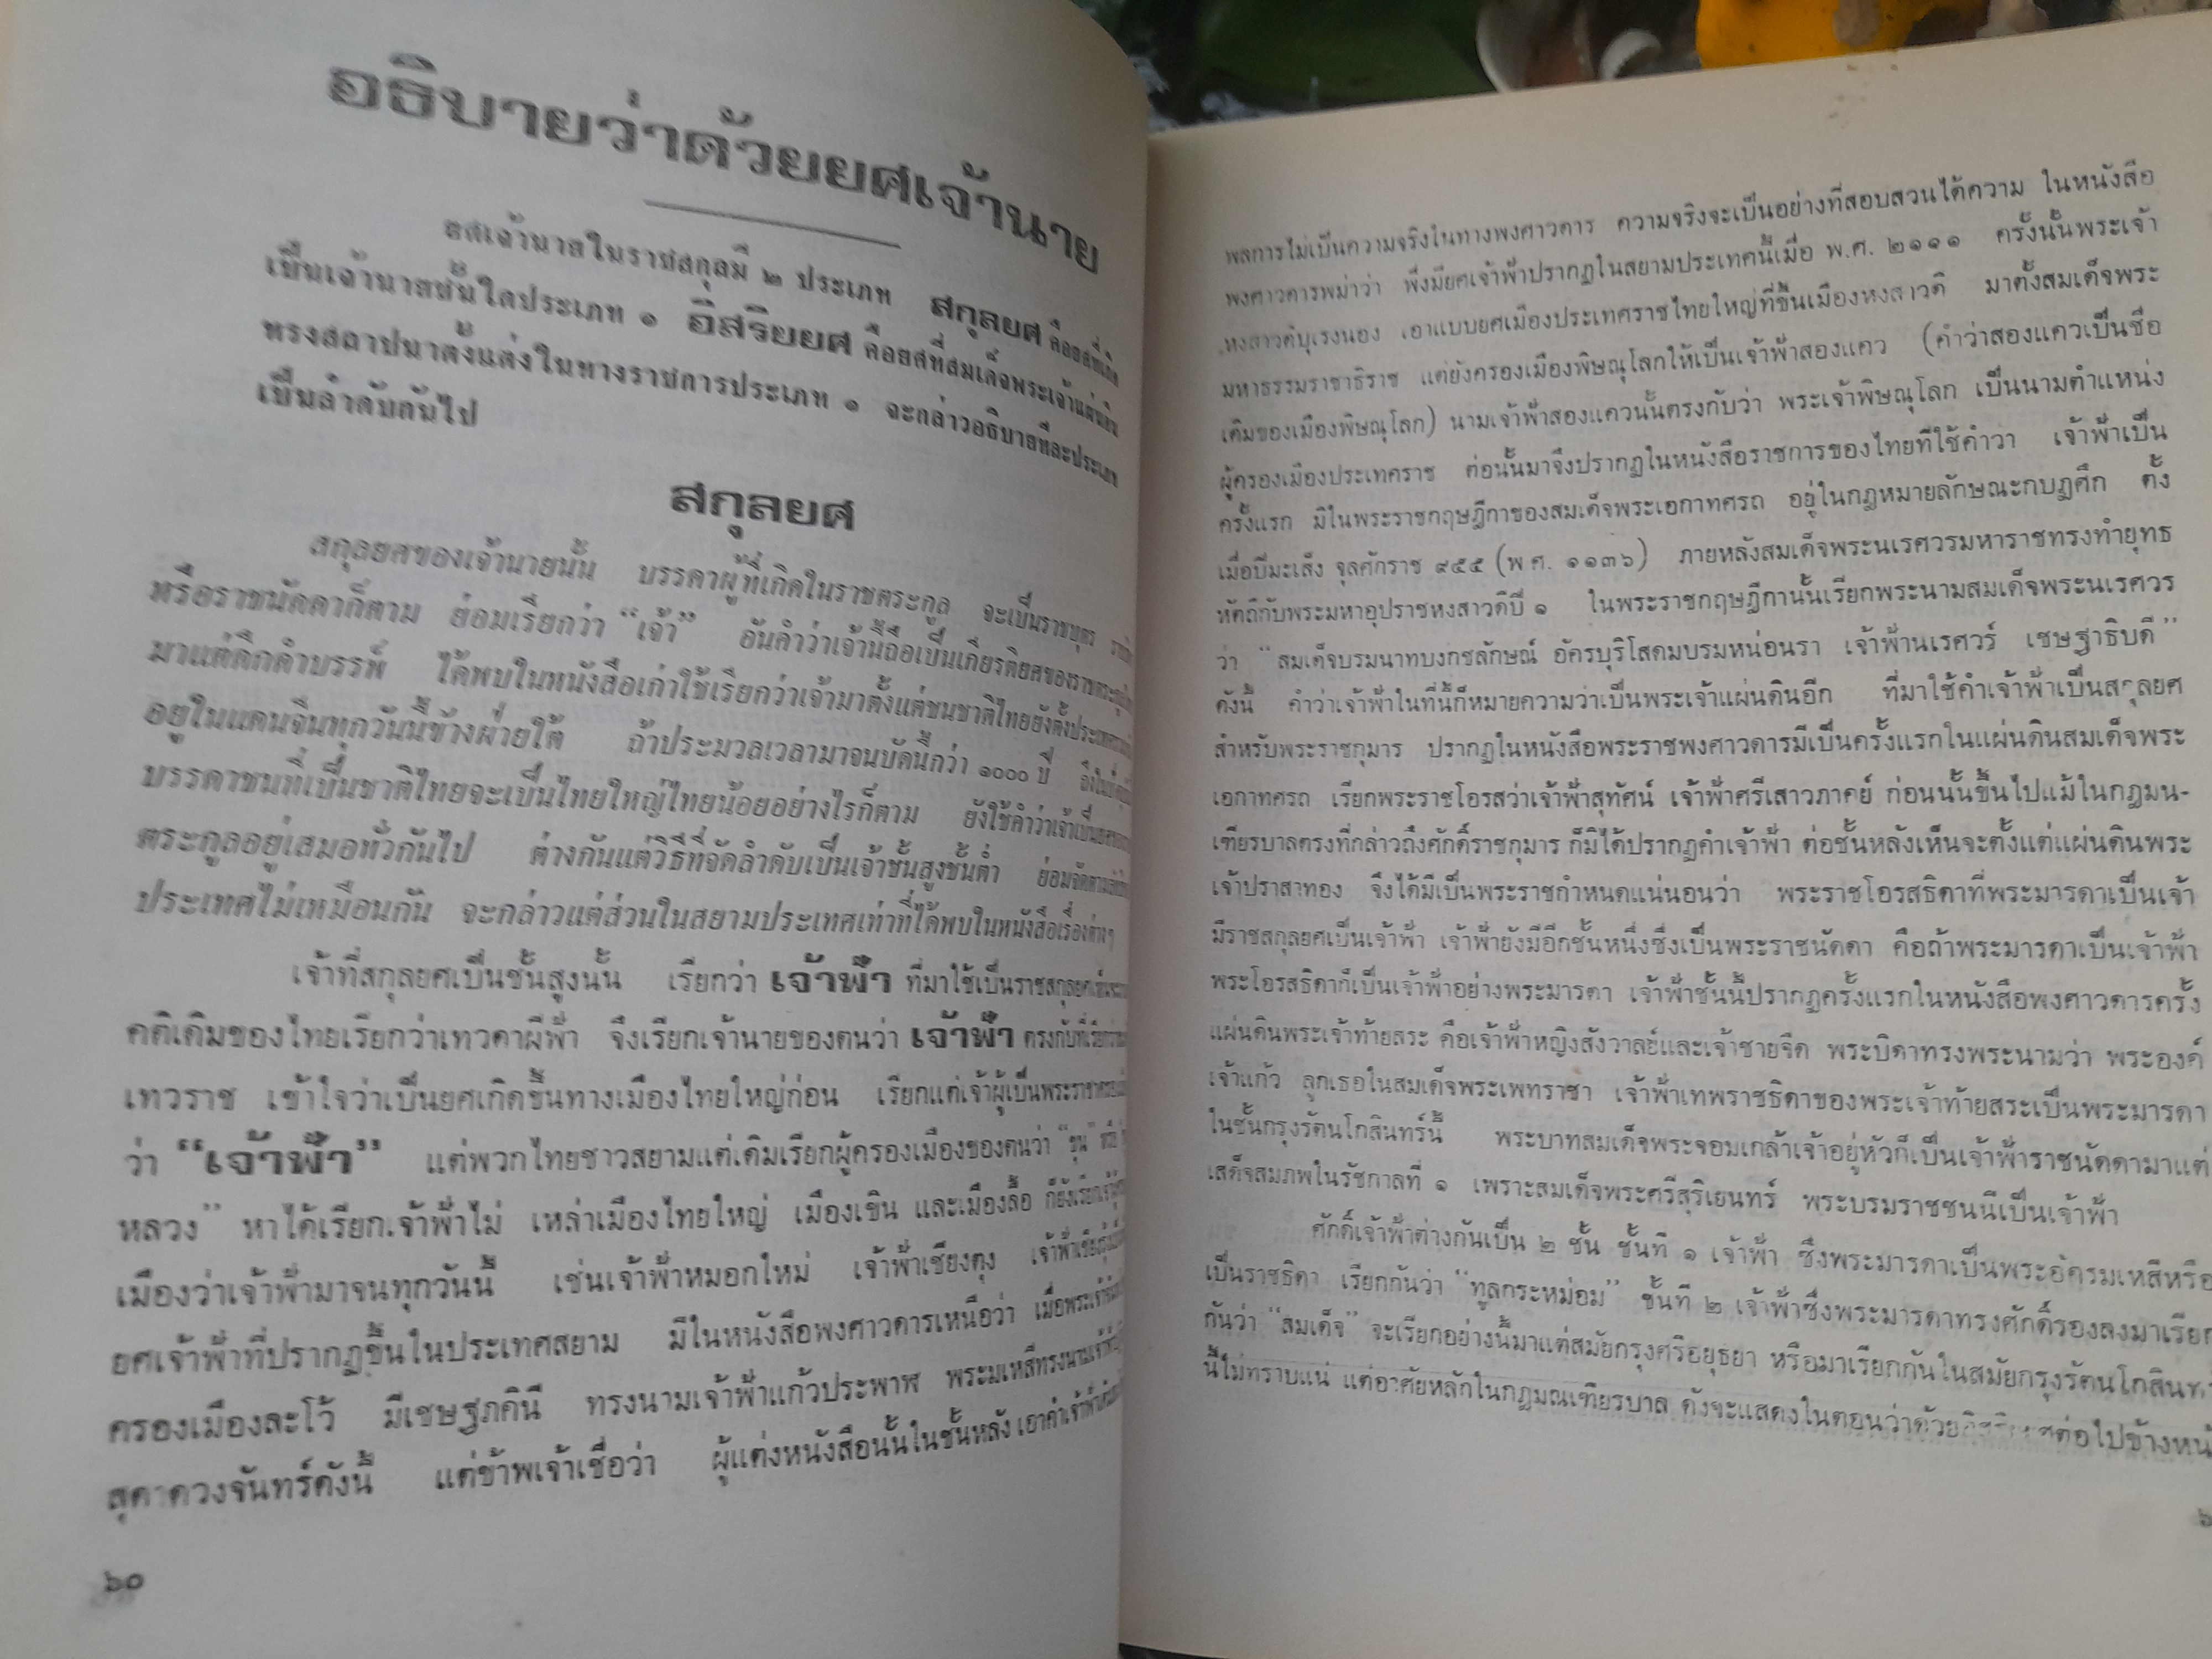 อธิบายว่าด้วยยศเจ้านาย
ยศเจ้านายในราชสกุลมี ๒ ประเภท สกุลยศ คือยศที่เกิด
เป็นเจ้านายชั้นใดประเภท ๑ อิสริยยศ คือยศที่สมเด็จพระเจ้าแผ่นดิน
ทรงสถาปนาตั้งแต่งในทางราชการประเภท ๑ จะกล่าวอธิบายทีละประเภท
เป็นลำดับกันไป
สกุลยศ
สกุลยศของเจ้านายนั้น บรรดาผู้ที่เกิดในราชตระกูล จะเป็นราชบุตร
หรือราชนัดดาก็ตาม ย่อมเรียกว่า “เจ้า” อันคำว่าเจ้านี้ถือเป็นเกียรติยศของราชตระกูล
มาแต่ดึกดำบรรพ์ ได้พบในหนังสือเก่าใช้เรียกว่าเจ้ามาตั้งแต่ชนชาติไทยยังตั้งประเทศ
อยู่ในแดนจีนทุกวันนี้ข้างฝ่ายใต้ ถ้าประมวลเวลามาจนบัดนี้กว่า ๑๐๐๐ ปี
บรรดาชนที่เป็นชาติไทยจะเป็นไทยใหญ่ไทยน้อยอย่างไรก็ตาม ยังใช้คำว่าเจ้าเป็นยศ
ตระกูลอยู่เสมอทั่วกันไป ต่างกันแต่วิธีที่จัดลำดับเป็นเจ้าชั้นสูงชั้นต่ำ ย่อมจัดตาม
ประเทศไม่เหมือนกัน จะกล่าวแต่ส่วนในสยามประเทศเท่าที่ได้พบในหนังสือเรื่องต่างๆ
เจ้าที่สกุลยศเป็นชั้นสูงนั้น เรียกว่า เจ้าฟ้า ที่มาใช้เป็นราชสกุลยศ
คติเดิมของไทยเรียกว่าเทวดาผีฟ้า จึงเรียกเจ้านายของตนว่า เจ้าฟ้า ตรงกับที่เรียกว่า
เทวราช เข้าใจว่าเป็นยศเกิดขึ้นทางเมืองไทยใหญ่ก่อน เรียกแต่เจ้าผู้เป็นพระราชา
ว่า “เจ้าฟ้า” แต่พวกไทยชาวสยามแต่เดิมเรียกผู้ครองเมืองของตนว่า “ขุน” หรือ
หลวง” หาได้เรียกเจ้าฟ้าไม่ เหล่าเมืองไทยใหญ่ เมืองเขิน และเมืองลื้อ ก็ยังเรียก
เมืองว่าเจ้าฟ้ามาจนทุกวันนี้ เช่นเจ้าฟ้าหมอกใหม่ เจ้าฟ้าเชียงตุง เจ้าฟ้าเชียงรุ้ง
ยศเจ้าฟ้าที่ปรากฏขึ้นในประเทศสยาม มีในหนังสือพงศาวดารเหนือว่า เมื่อพระเจ้า
ครองเมืองละโว้ มีเชษฐภคินี ทรงนามเจ้าฟ้าแก้วประพาฬ พระมเหสีทรงนามเจ้าฟ้า
สุดาดวงจันทร์ดังนี้ แต่ข้าพเจ้าเชื่อว่า ผู้แต่งหนังสือนั้นในชั้นหลัง เอาคำเจ้าฟ้า
๖๐
พลการไม่เป็นความจริงในทางพงศาวดาร ความจริงจะเป็นอย่างที่สอบสวนได้ความ ในหนังสือ
พงศาวดารพม่าว่า พึ่งมียศเจ้าฟ้าปรากฏในสยามประเทศนี้เมื่อ พ.ศ. ๒๑๑๑ ครั้งนั้นพระเจ้า
หงสาวดีบุเรงนอง เอาแบบยศเมืองประเทศราชไทยใหญ่ที่ขึ้นเมืองหงสาวดี มาตั้งสมเด็จพระ
มหาธรรมราชาธิราช แต่ยังครองเมืองพิษณุโลกให้เป็นเจ้าฟ้าสองแคว (คำว่าสองแควเป็นชื่อ
เดิมของเมืองพิษณุโลก) นามเจ้าฟ้าสองแควนั้นตรงกับว่า พระเจ้าพิษณุโลก เป็นนามตำแหน่ง
ผู้ครองเมืองประเทศราช ต่อนั้นมาจึงปรากฏในหนังสือราชการของไทยที่ใช้คำว่า เจ้าฟ้าเป็น
ครั้งแรก มีในพระราชกฤษฎีกาของสมเด็จพระเอกาทศรถ อยู่ในกฎหมายลักษณะกบฏศึก ตั้ง
เมื่อปีมะเส็ง จุลศักราช ๙๕๕ (พ.ศ. ๑๑๓๖) ภายหลังสมเด็จพระนเรศวรมหาราชทรงทำยุทธ
หัตถีกับพระมหาอุปราชหงสาวดีปี ๑ ในพระราชกฤษฎีกานั้นเรียกพระนามสมเด็จพระนเรศวร
ว่า “สมเด็จบรมนาทบงกชลักษณ์ อัครบุริโสดมบรมหน่อนรา เจ้าฟ้านเรศวร์ เชษฐาธิบดี”
ดังนี้ คำว่าเจ้าฟ้าในที่นี้ก็หมายความว่าเป็นพระเจ้าแผ่นดินอีก ที่มาใช้คำเจ้าฟ้าเป็นสกุลยศ
สำหรับพระราชกุมาร ปรากฏในหนังสือพระราชพงศาวดารมีเป็นครั้งแรกในแผ่นดินสมเด็จพระ
เอกาทศรถ เรียกพระราชโอรสว่าเจ้าฟ้าสุทัศน์ เจ้าฟ้าศรีเสาวภาคย์ ก่อนนั้นขึ้นไปแม้ในกฎมน-
เฑียรบาลตรงที่กล่าวถึงศักดิ์ราชกุมาร ก็มิได้ปรากฏคำเจ้าฟ้า ต่อชั้นหลังเห็นจะตั้งแต่แผ่นดินพระ
เจ้าปราสาททอง จึงได้มีเป็นพระราชกำหนดแน่นอนว่า พระราชโอรสธิดาที่พระมารดาเป็นเจ้า
มีราชสกุลยศเป็นเจ้าฟ้า เจ้าฟ้ายังมีอีกชั้นหนึ่งซึ่งเป็นพระราชนัดดา คือถ้าพระมารดาเป็นเจ้าฟ้า
พระโอรสธิดาก็เป็นเจ้าฟ้าอย่างพระมารดา เจ้าฟ้าชั้นนี้ปรากฏครั้งแรกในหนังสือพงศาวดารครั้ง
แผ่นดินพระเจ้าท้ายสระ คือเจ้าฟ้าหญิงสังวาลย์และเจ้าชายจีด พระบิดาทรงพระนามว่า พระองค์
เจ้าแก้ว ลูกเธอในสมเด็จพระเพทราชา เจ้าฟ้าเทพราชธิดาของพระเจ้าท้ายสระเป็นพระมารดา
ในชั้นกรุงรัตนโกสินทร์นี้ พระบาทสมเด็จพระจอมเกล้าเจ้าอยู่หัวก็เป็นเจ้าฟ้าราชนัดดามาแต่
เสด็จสมภพในรัชกาลที่ ๑ เพราะสมเด็จพระศรีสุริเยนทร์ พระบรมราชชนนีเป็นเจ้าฟ้า
ศักดิ์เจ้าฟ้าต่างกันเป็น ๒ ชั้น ชั้นที่ ๑ เจ้าฟ้า ซึ่งพระมารดาเป็นพระอัครมเหสีหรือ
เป็นราชธิดา เรียกกันว่า “ทูลกระหม่อม” ชั้นที่ ๒ เจ้าฟ้าซึ่งพระมารดาทรงศักดิ์รองลงมาเรียก
กันว่า “สมเด็จ” จะเรียกอย่างนี้มาแต่สมัยกรุงศรีอยุธยา หรือมาเรียกกันในสมัยกรุงรัตนโกสินทร์
นี้ไม่ทราบแน่ แต่อาศัยหลักในกฎมณเฑียรบาล ดังจะแสดงในตอนว่าด้วยอิสริยยศต่อไปข้างหน้า